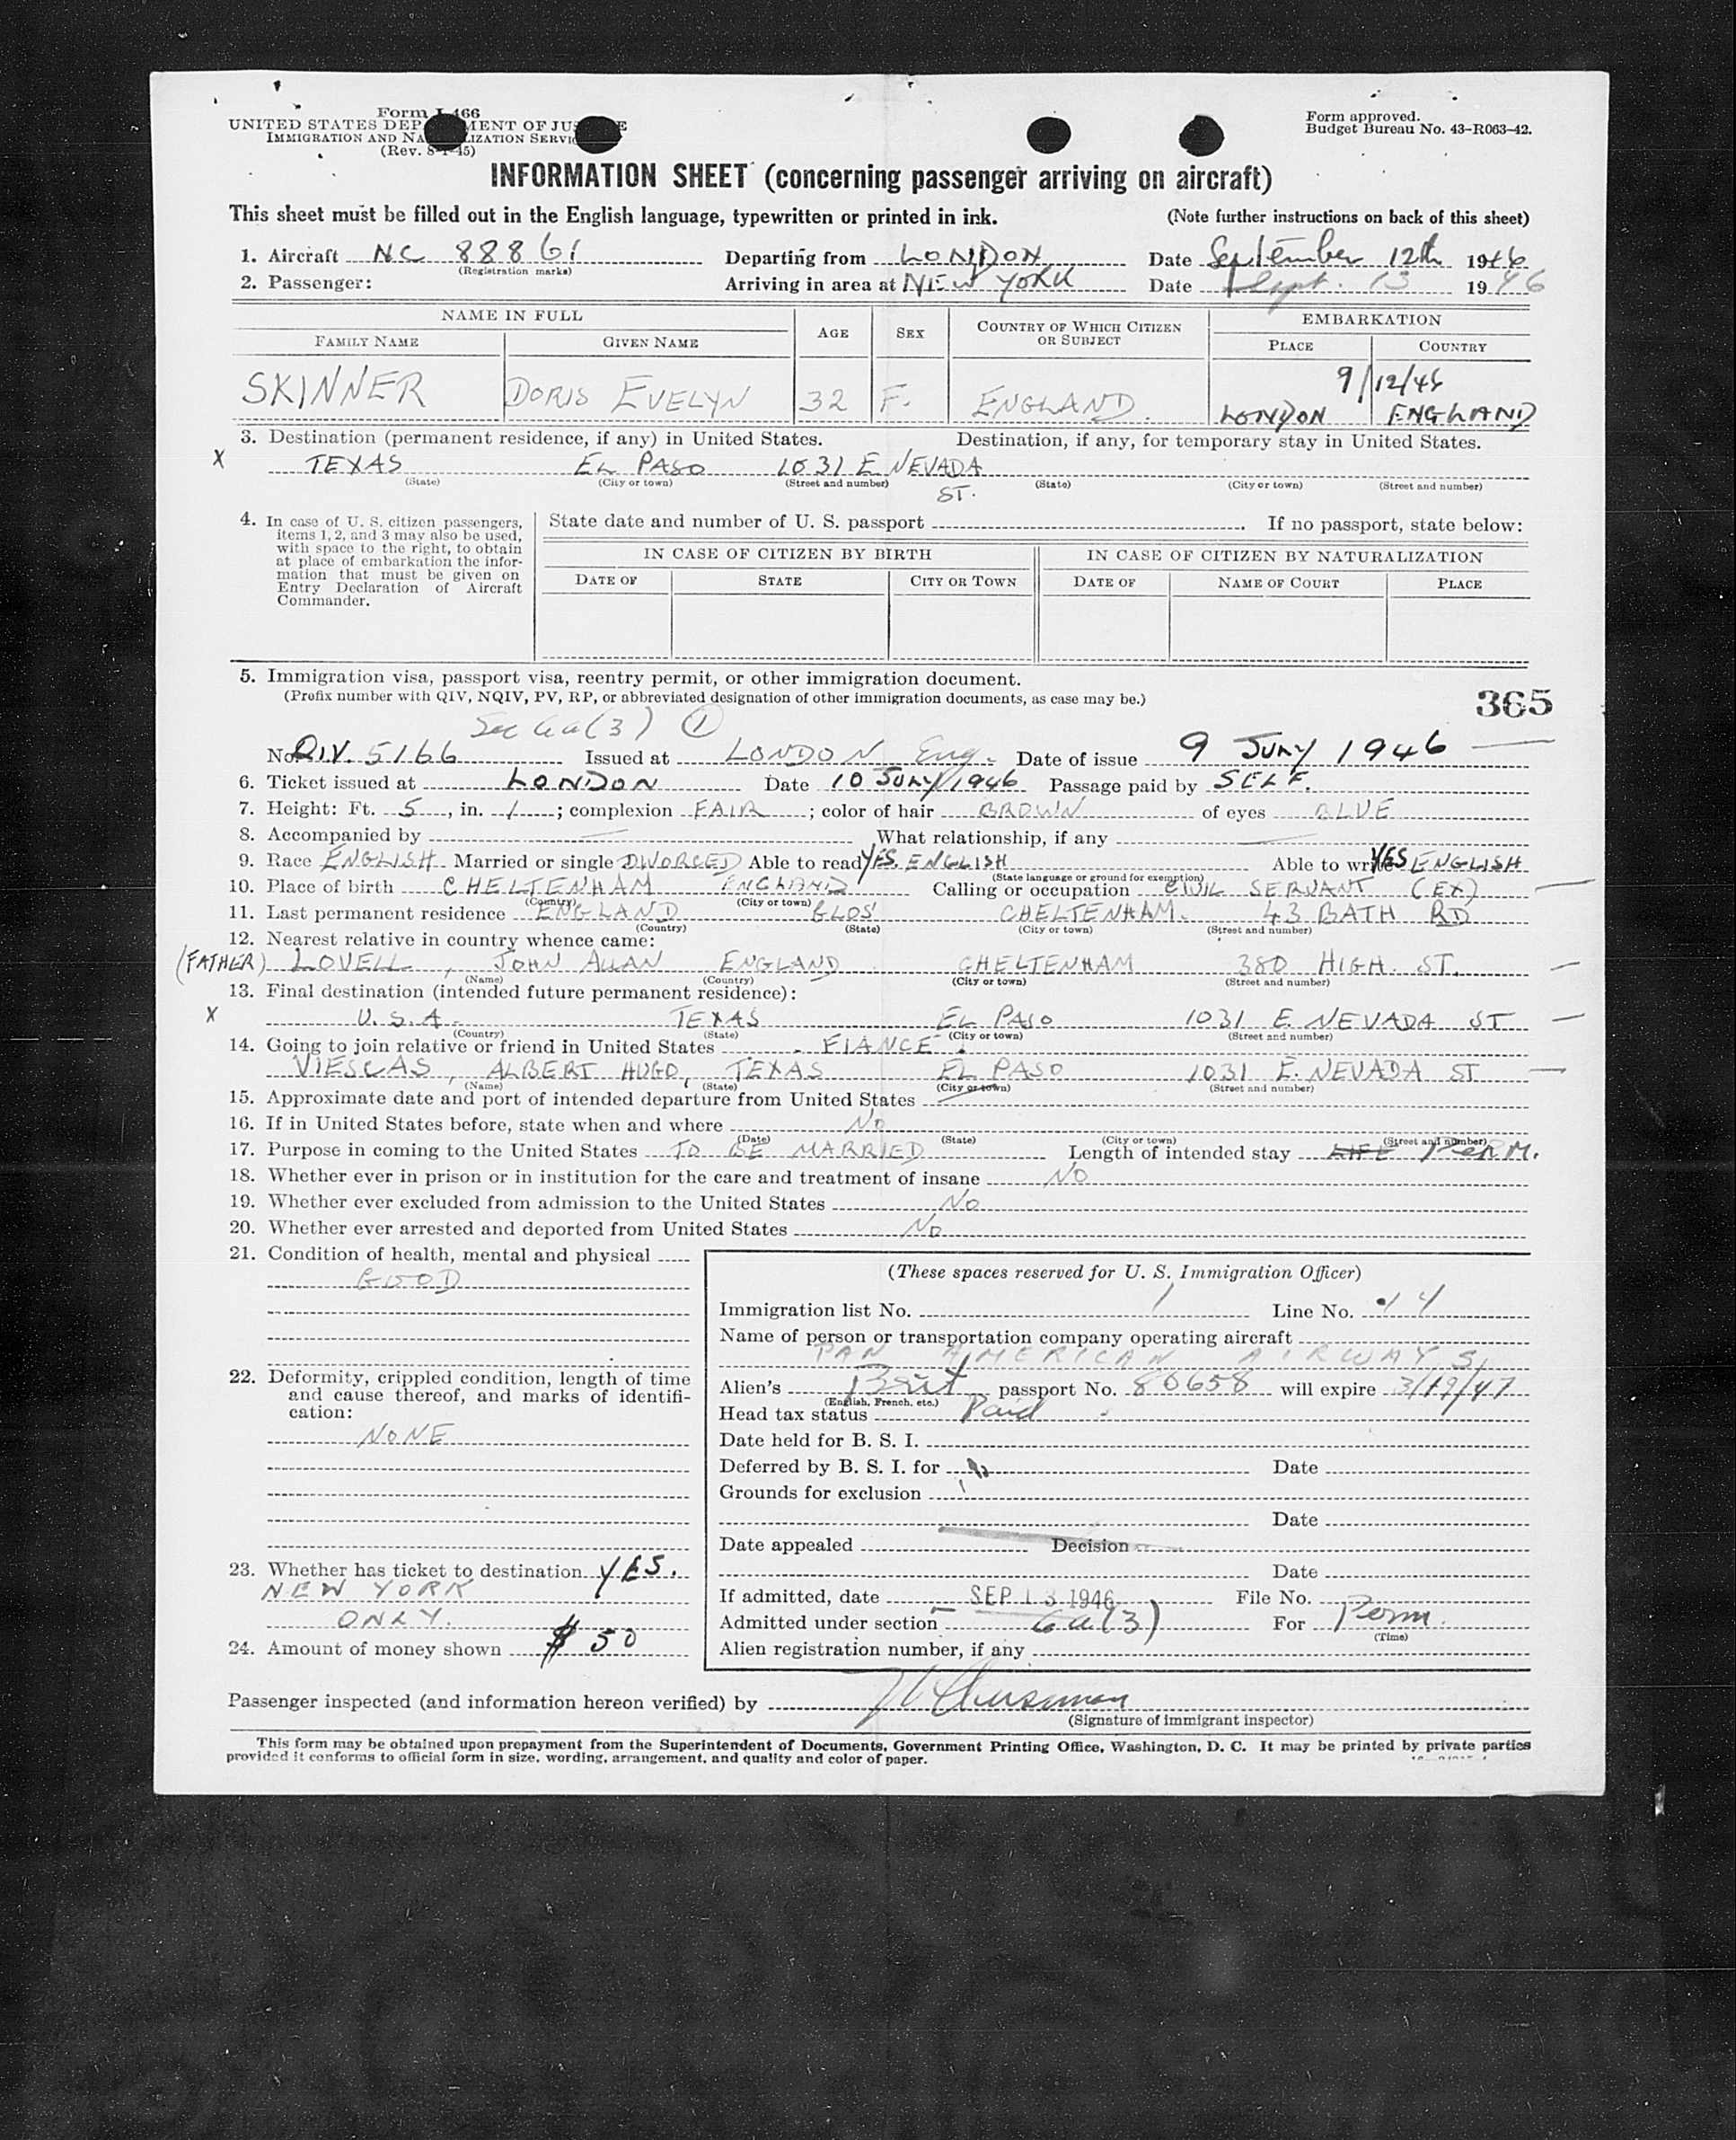 Form I-466
UNITED STATES DEPARTMENT OF JUSTICE
IMMIGRATION AND NATURALIZATION SERVICE
(Rev. 8-1-45)
Form approved.
Budget Bureau No. 43-R063-42.
INFORMATION SHEET (concerning passenger arriving on aircraft)
This sheet must be filled out in the English language, typewritten or printed in ink. (Note further instructions on back of this sheet)
1. Aircraft NC 88861 Departing from LONDON Date September 12th 1946
(Registration marks)
2. Passenger: Arriving in area at NEW YORK Date Sept. 13 1946
NAME IN FULL AGE SEX COUNTRY OF WHICH CITIZEN OR SUBJECT EMBARKATION
FAMILY NAME GIVEN NAME PLACE COUNTRY
9/12/46
SKINNER DORIS EVELYN 32 F. ENGLAND. LONDON ENGLAND
3. Destination (permanent residence, if any) in United States. Destination, if any, for temporary stay in United States.
X TEXAS EL PASO 1031 E NEVADA ST.
(State) (City or town) (Street and number) (State) (City or town) (Street and number)
4. In case of U. S. citizen passengers, items 1, 2, and 3 may also be used, with space to the right, to obtain at place of embarkation the information that must be given on Entry Declaration of Aircraft Commander.
State date and number of U. S. passport . If no passport, state below:
IN CASE OF CITIZEN BY BIRTH IN CASE OF CITIZEN BY NATURALIZATION
DATE OF STATE CITY OR TOWN DATE OF NAME OF COURT PLACE
5. Immigration visa, passport visa, reentry permit, or other immigration document.
(Prefix number with QIV, NQIV, PV, RP, or abbreviated designation of other immigration documents, as case may be.) 365
Sec 6a(3) 1
No. QIV. 5166 Issued at LONDON Eng. Date of issue 9 JULY 1946
6. Ticket issued at LONDON Date 10 JULY 1946 Passage paid by SELF.
7. Height: Ft. 5, in. 1; complexion FAIR; color of hair BROWN of eyes BLUE
8. Accompanied by — What relationship, if any —
9. Race ENGLISH Married or single DIVORCED Able to read YES. ENGLISH Able to write YES ENGLISH
(State language or ground for exemption)
10. Place of birth CHELTENHAM ENGLAND Calling or occupation CIVIL SERVANT (EX)
(Country) (City or town)
11. Last permanent residence ENGLAND GLOS' CHELTENHAM. 43 BATH RD
(Country) (State) (City or town) (Street and number)
12. Nearest relative in country whence came:
(FATHER) LOVELL, JOHN ALLAN ENGLAND CHELTENHAM 380 HIGH. ST.
(Name) (Country) (City or town) (Street and number)
13. Final destination (intended future permanent residence):
X U.S.A. TEXAS EL PASO 1031 E. NEVADA ST
(Country) (State) (City or town) (Street and number)
14. Going to join relative or friend in United States FIANCE.
VIESCAS, ALBERT HUGO, TEXAS EL PASO 1031 E. NEVADA ST
(Name) (State) (City or town) (Street and number)
15. Approximate date and port of intended departure from United States
16. If in United States before, state when and where NO
(Date) (State) (City or town) (Street and number)
17. Purpose in coming to the United States TO BE MARRIED Length of intended stay LIFE PERM.
18. Whether ever in prison or in institution for the care and treatment of insane NO
19. Whether ever excluded from admission to the United States NO
20. Whether ever arrested and deported from United States NO
21. Condition of health, mental and physical
GOOD
22. Deformity, crippled condition, length of time and cause thereof, and marks of identification:
NONE
23. Whether has ticket to destination YES.
NEW YORK
ONLY.
24. Amount of money shown $50
(These spaces reserved for U. S. Immigration Officer)
Immigration list No. 1 Line No. 14
Name of person or transportation company operating aircraft
PAN AMERICAN AIRWAYS,
Alien's Brit passport No. 80658 will expire 3/19/47
(English, French, etc.)
Head tax status Paid
Date held for B. S. I.
Deferred by B. S. I. for Date
Grounds for exclusion
Date
Date appealed Decision
Date
If admitted, date SEP 13 1946 File No.
Admitted under section 6a(3) For Perm.
(Time)
Alien registration number, if any
Passenger inspected (and information hereon verified) by
(Signature of immigrant inspector)
This form may be obtained upon prepayment from the Superintendent of Documents, Government Printing Office, Washington, D. C. It may be printed by private parties
provided it conforms to official form in size, wording, arrangement, and quality and color of paper.